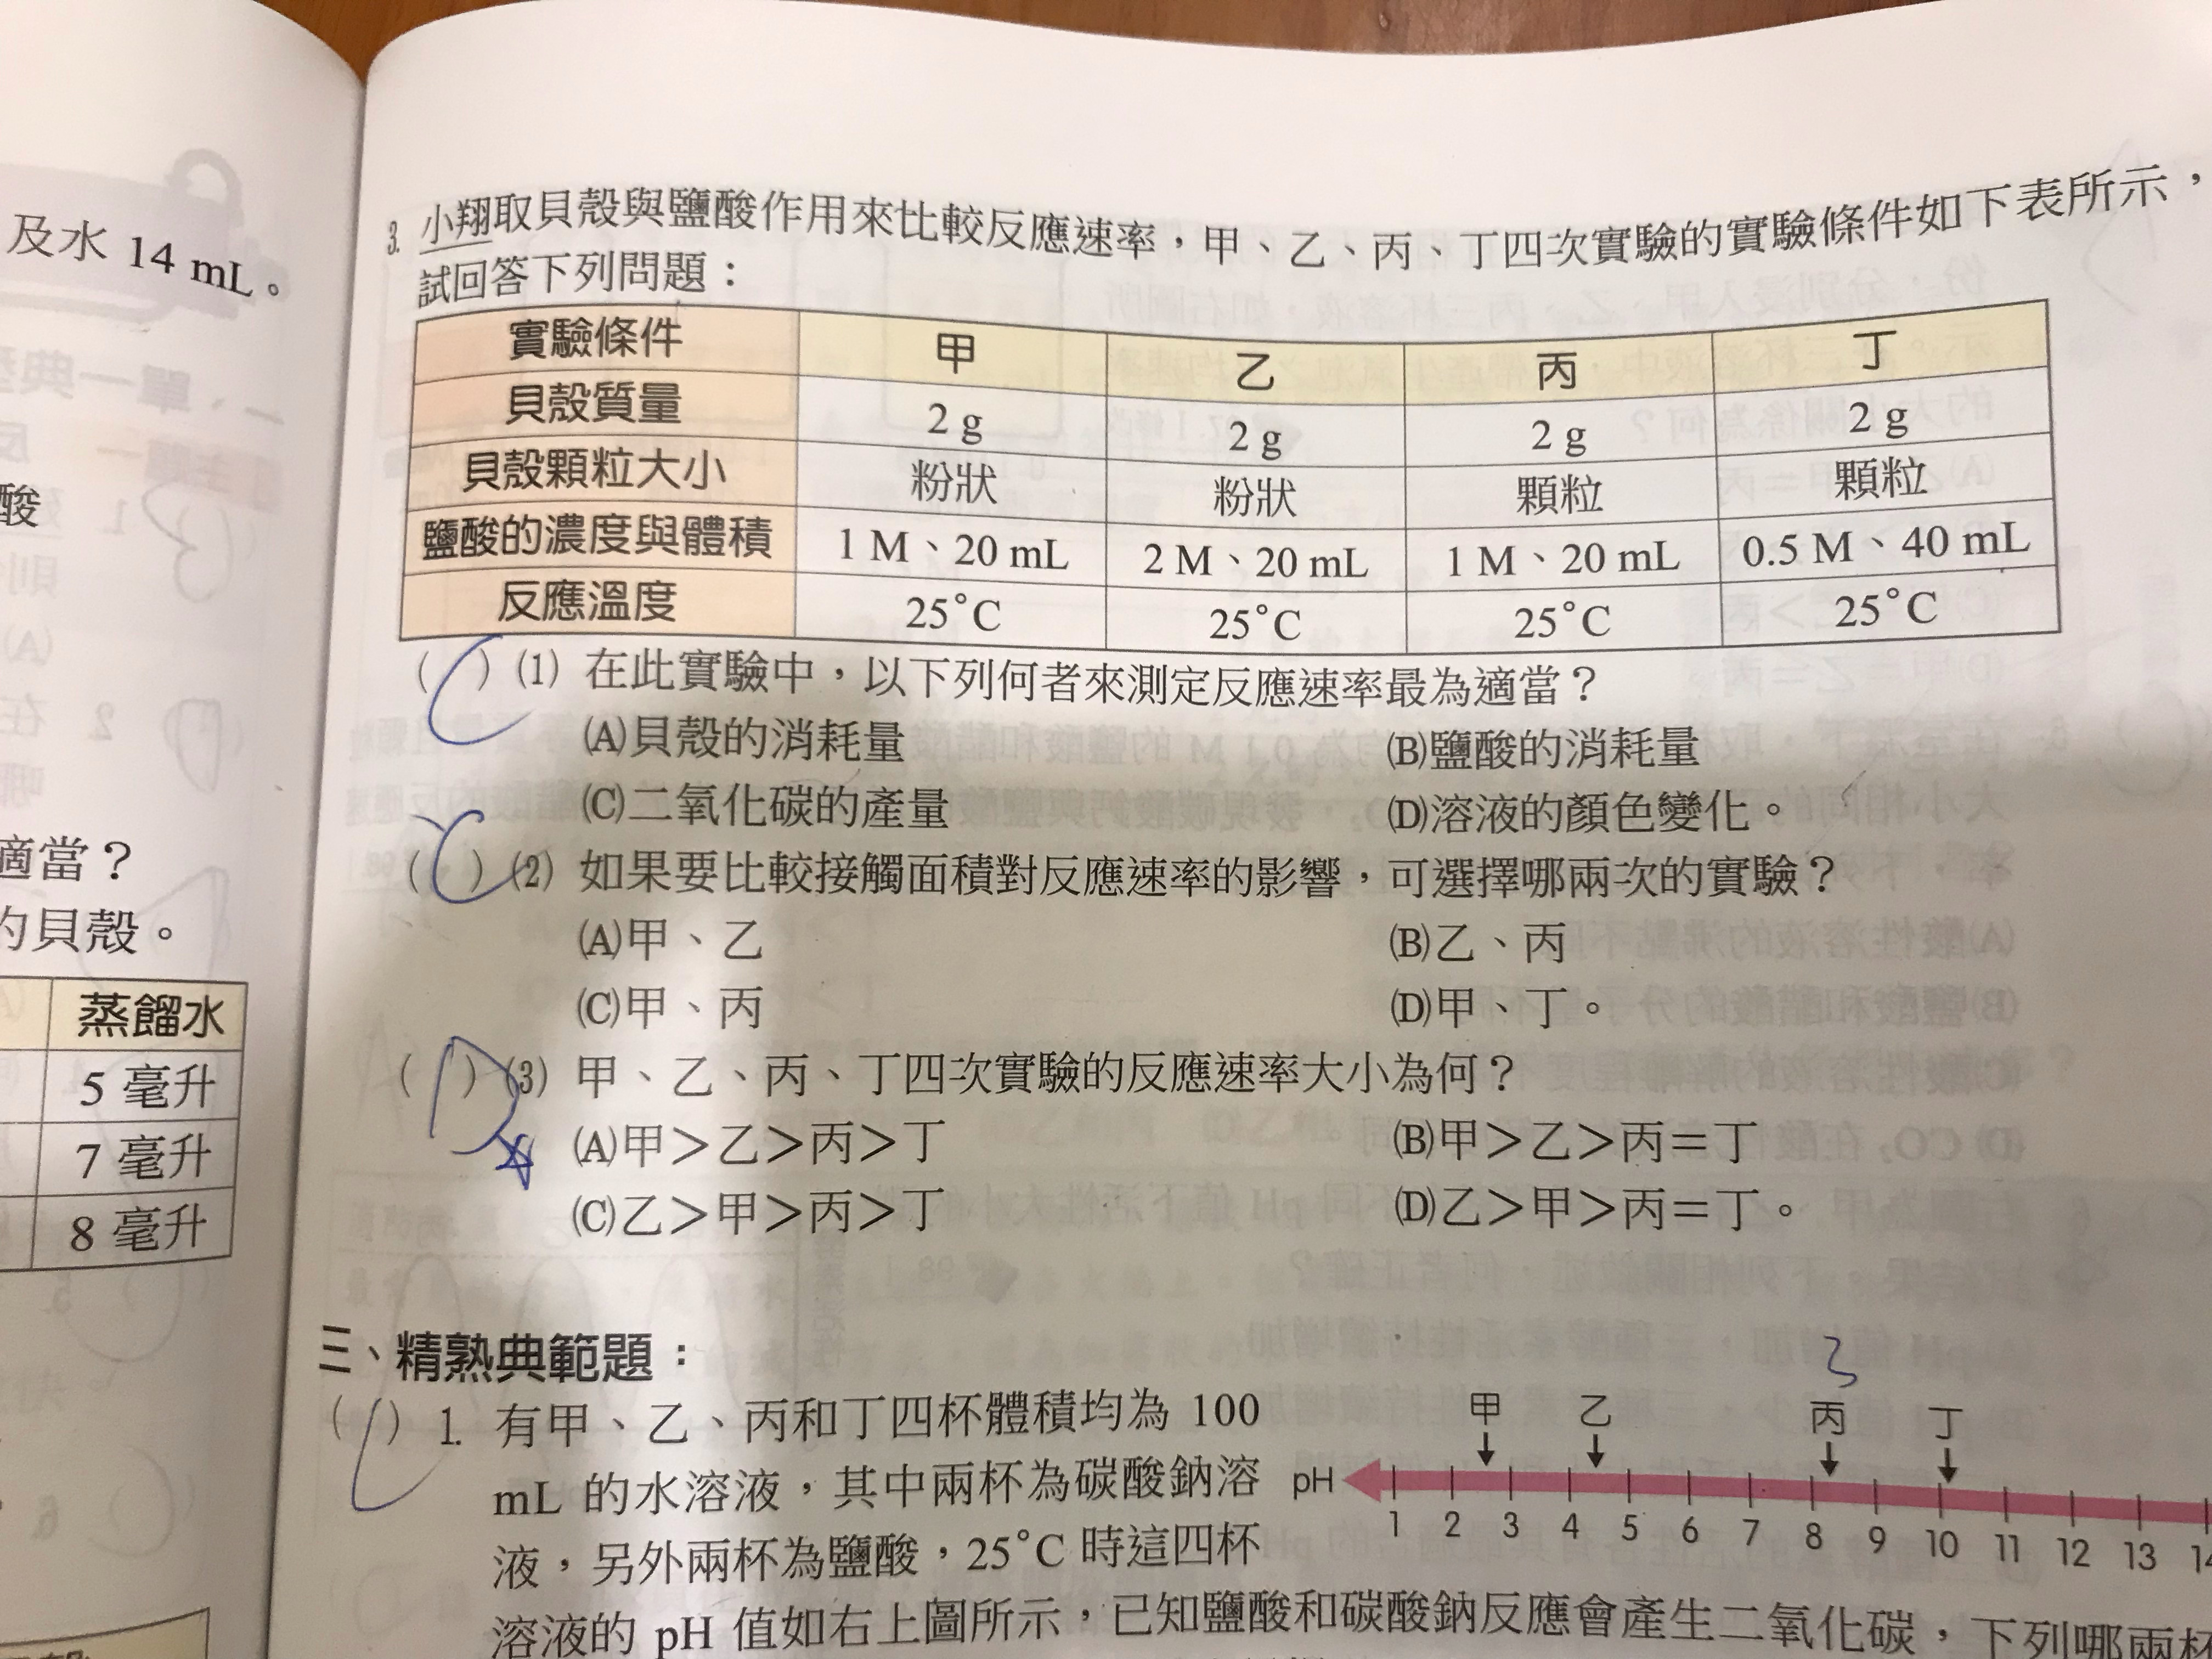 及水 14 mL。
酸
適當？
的貝殼。
蒸餾水
5 毫升
7 毫升
8 毫升
3. 小翔取貝殼與鹽酸作用來比較反應速率，甲、乙、丙、丁四次實驗的實驗條件如下表所示，
試回答下列問題：
實驗條件 甲 乙 丙 丁
貝殼質量 2 g 2 g 2 g 2 g
貝殼顆粒大小 粉狀 粉狀 顆粒 顆粒
鹽酸的濃度與體積 1 M、20 mL 2 M、20 mL 1 M、20 mL 0.5 M、40 mL
反應溫度 25°C 25°C 25°C 25°C
( C ) (1) 在此實驗中，以下列何者來測定反應速率最為適當？
(A)貝殼的消耗量 (B)鹽酸的消耗量
(C)二氧化碳的產量 (D)溶液的顏色變化。
( C ) (2) 如果要比較接觸面積對反應速率的影響，可選擇哪兩次的實驗？
(A)甲、乙 (B)乙、丙
(C)甲、丙 (D)甲、丁。
( D ) (3) 甲、乙、丙、丁四次實驗的反應速率大小為何？
(A)甲＞乙＞丙＞丁 (B)甲＞乙＞丙＝丁
(C)乙＞甲＞丙＞丁 (D)乙＞甲＞丙＝丁。
三、精熟典範題：
( ) 1. 有甲、乙、丙和丁四杯體積均為 100
mL 的水溶液，其中兩杯為碳酸鈉溶
液，另外兩杯為鹽酸，25°C 時這四杯
溶液的 pH 值如右上圖所示，已知鹽酸和碳酸鈉反應會產生二氧化碳，下列哪兩杯
甲 乙 丙 丁
pH
1 2 3 4 5 6 7 8 9 10 11 12 13 14